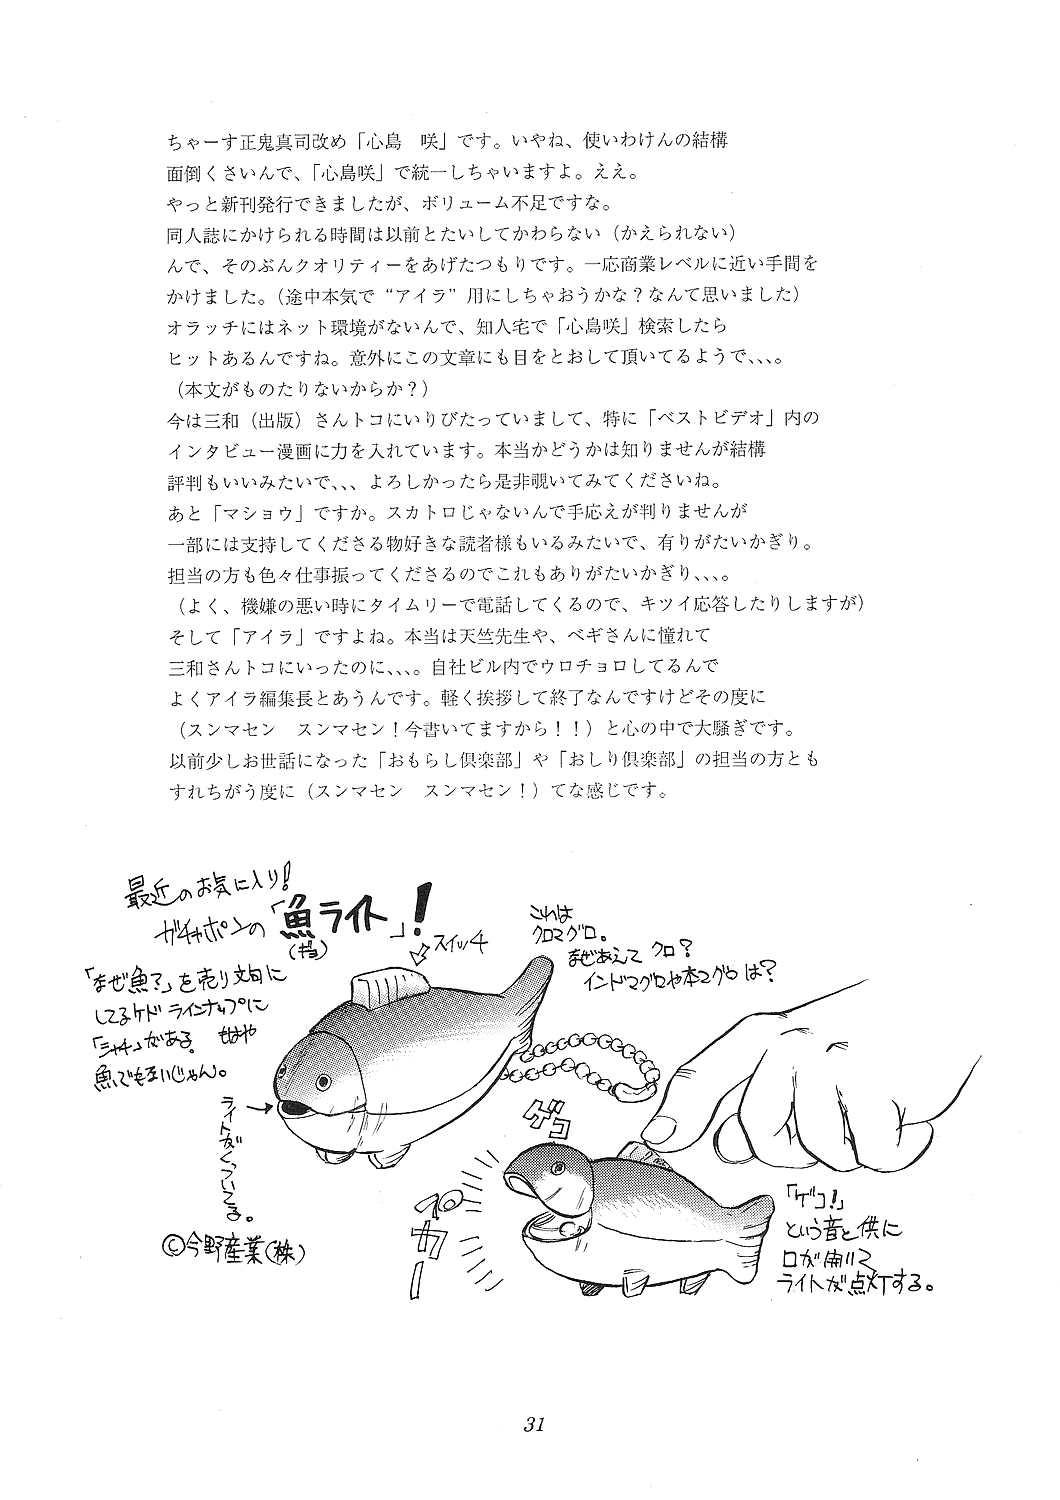 ちゃーす正鬼真司改め「心島　咲」です。いやね、使いわけんの結構
面倒くさいんで、「心島咲」で統一しちゃいますよ。ええ。
やっと新刊発行できましたが、ボリューム不足ですな。
同人誌にかけられる時間は以前とたいしてかわらない（かえられない）
んで、そのぶんクオリティーをあげたつもりです。一応商業レベルに近い手間を
かけました。（途中本気で“アイラ”用にしちゃおうかな？なんて思いました）
オラッチにはネット環境がないんで、知人宅で「心島咲」検索したら
ヒットあるんですね。意外にこの文章にも目をとおして頂いてるようで、、、。
（本文がものたりないからか？）
今は三和（出版）さんトコにいりびたっていまして、特に「ベストビデオ」内の
インタビュー漫画に力を入れています。本当かどうかは知りませんが結構
評判もいいみたいで、、、よろしかったら是非覗いてみてくださいね。
あと「マショウ」ですか。スカトロじゃないんで手応えが判りませんが
一部には支持してくださる物好きな読者様もいるみたいで、有りがたいかぎり。
担当の方も色々仕事振ってくださるのでこれもありがたいかぎり、、、。
（よく、機嫌の悪い時にタイムリーで電話してくるので、キツイ応答したりしますが）
そして「アイラ」ですよね。本当は天竺先生や、ベギさんに憧れて
三和さんトコにいったのに、、、。自社ビル内でウロチョロしてるんで
よくアイラ編集長とあうんです。軽く挨拶して終了なんですけどその度に
（スンマセン　スンマセン！今書いてますから！！）と心の中で大騒ぎです。
以前少しお世話になった「おもらし倶楽部」や「おしり倶楽部」の担当の方とも
すれちがう度に（スンマセン　スンマセン！）てな感じです。
最近のお気に入り！
ガチャポンの「魚ライト」！
スイッチ
「なぜ魚？」を売り文句に
してるケド ラインナップに
「シャチ」がある。もはや
魚でもないじゃん。
これは
クロマグロ。
なぜあえて クロ？
インドマグロや本マグロは？
ライトがくっついてる。
©今野産業（株）
ゲコ
ピカー
「ゲコ！」
という音と供に
口が開いて
ライトが点灯する。
31